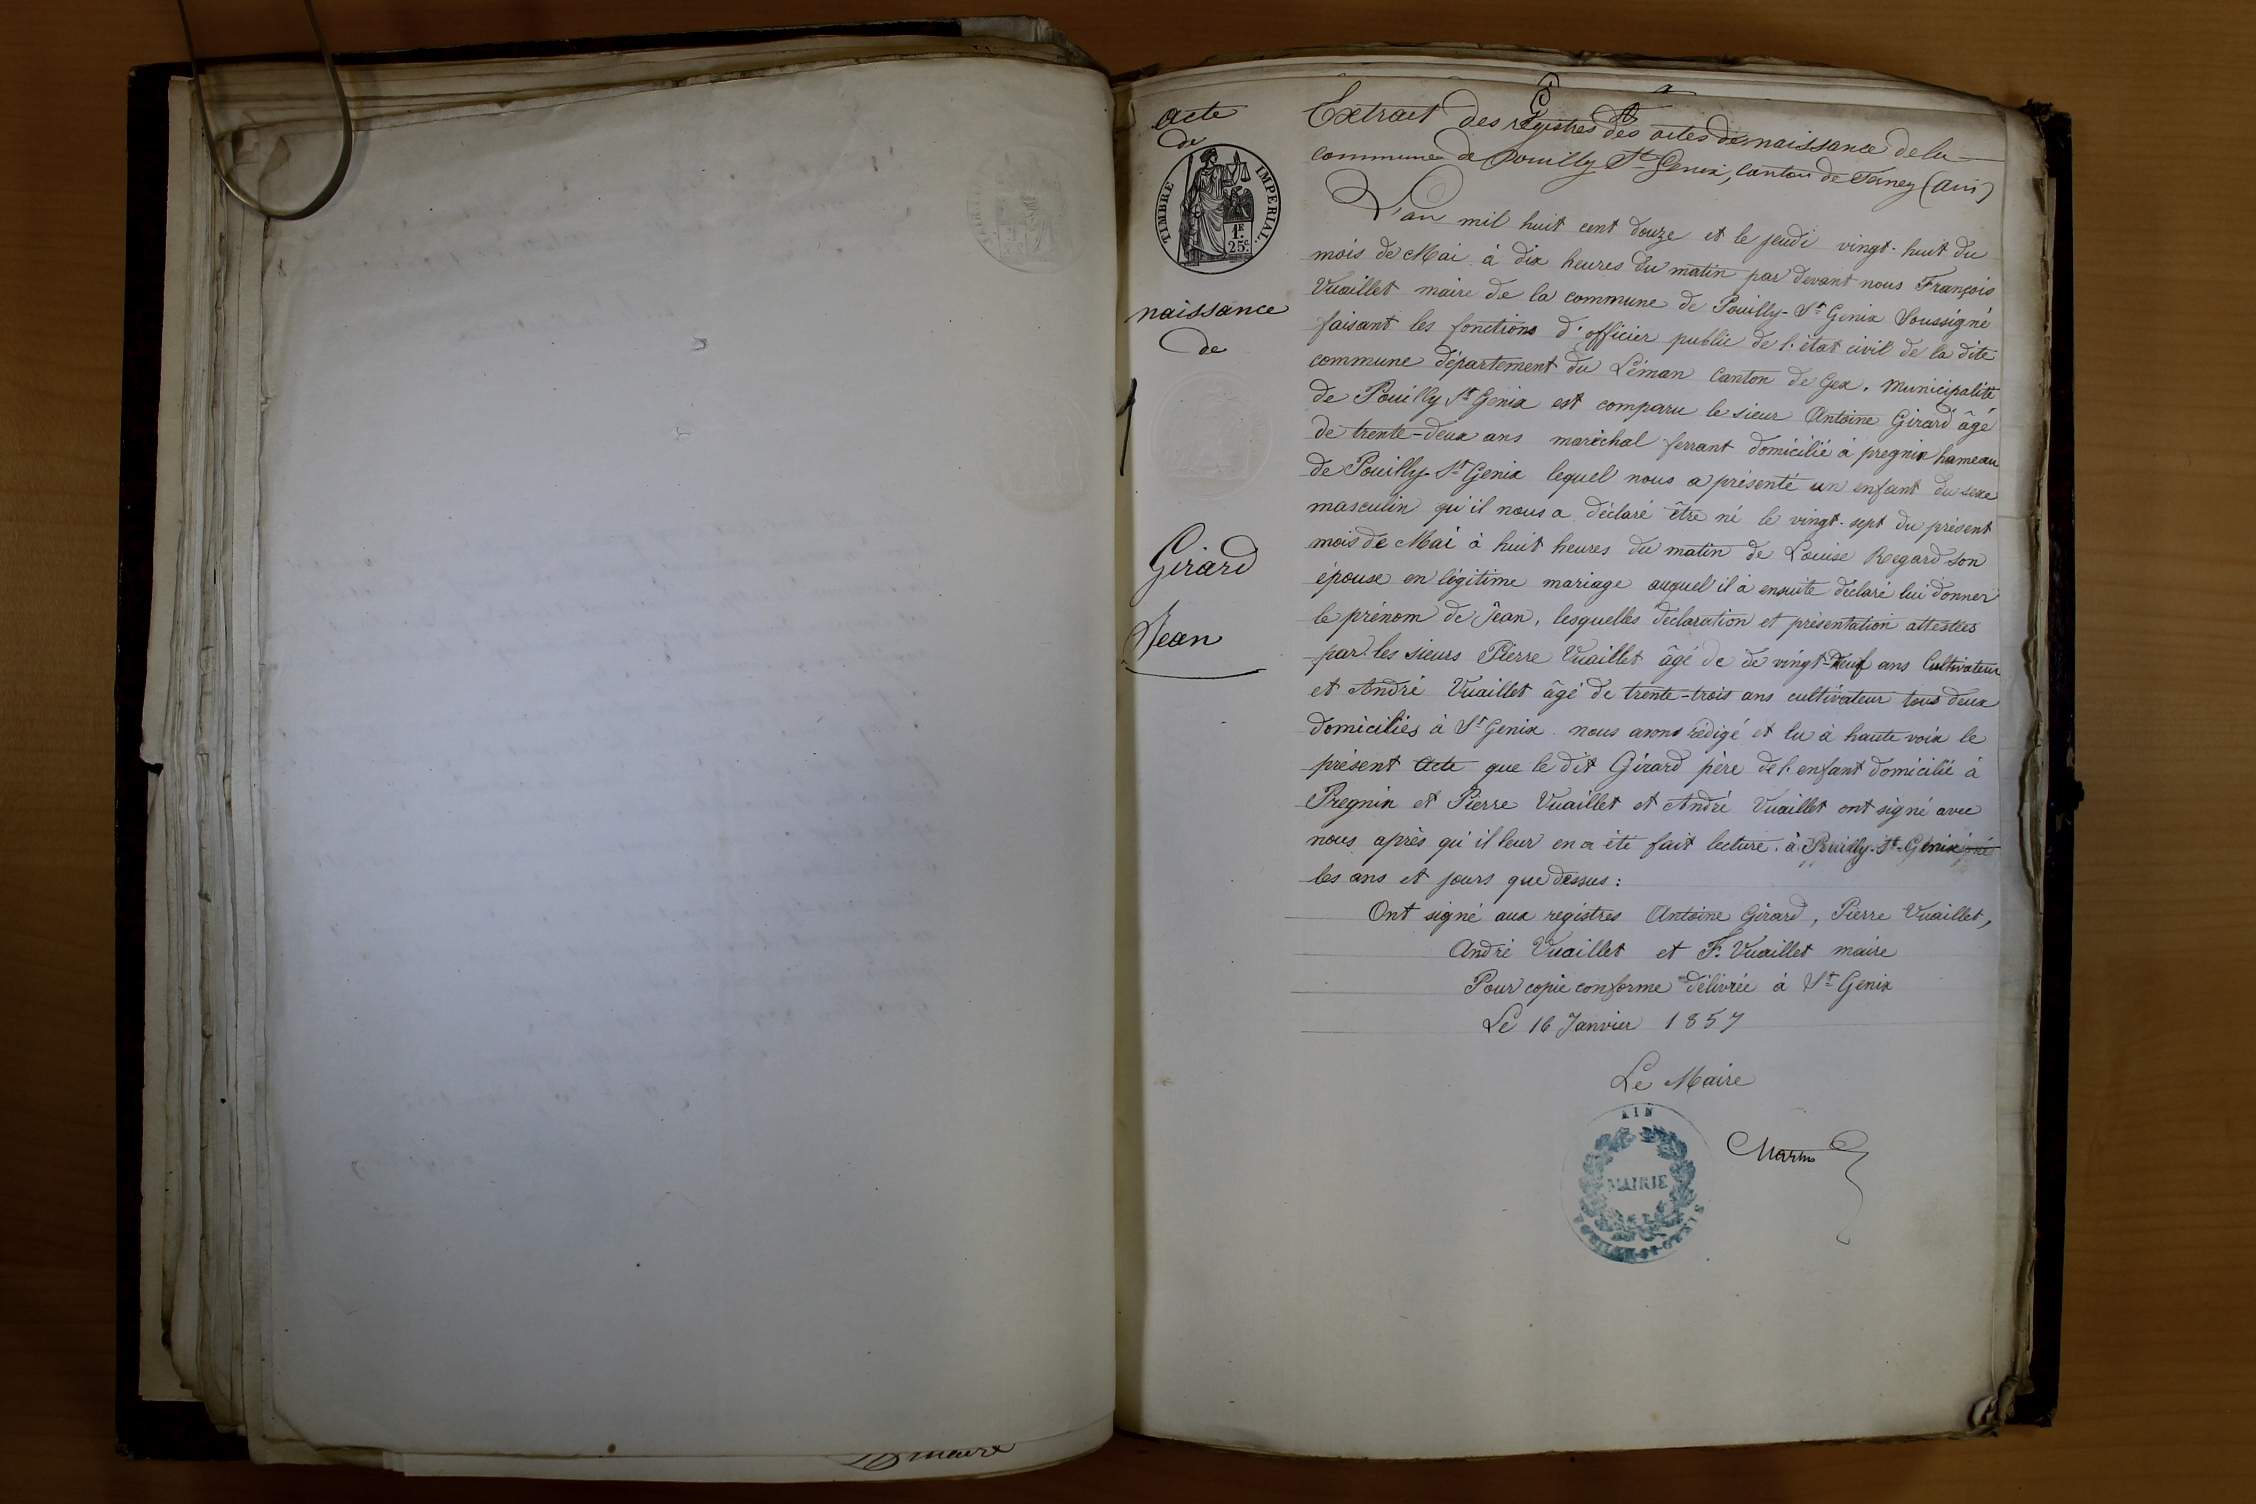 Acte
de
TIMBRE IMPERIAL.
1F.
25c.
naissance
de
Girard
Jean
Extrait des registres des actes de naissance de la
commune de Pouilly St Genix, Canton de Ferney (Ain)
L'an mil huit cent douze et le jeudi vingt-huit du
mois de Mai à dix heures du matin par devant nous François
Vuaillet maire de la commune de Pouilly-St Genix Soussigné
faisant les fonctions d'officier public de l'état civil de la dite
commune département du Léman Canton de Gex. Municipalité
de Pouilly St Genix est comparu le sieur Antoine Girard âgé
de trente-deux ans maréchal ferrant domicilié à pregnin hameau
de Pouilly-St Genix lequel nous a présenté un enfant du sexe
masculin qu'il nous a déclaré être né le vingt-sept du présent
mois de Mai à huit heures du matin de Louise Regard son
épouse en légitime mariage auquel il à ensuite déclaré lui donner
le prénom de Jean, lesquelles déclaration et présentation attestées
par les sieurs Pierre Vuaillet âgé de de ans Cultivateur
et André Vuaillet âgé de trente-trois ans cultivateur tous deux
domiciliés à St Genix nous avons rédigé et lu à haute voix le
présent Acte que le dit Girard père de l'enfant domicilié à
Pregnin et Pierre Vuaillet et André Vuaillet ont signé avec
nous après qu'il leur en a été fait lecture. à Pouilly-St-Genix
les ans et jours que dessus:
Ont signé aux registres Antoine Girard, Pierre Vuaillet,
André Vuaillet et F. Vuaillet maire
Pour copie conforme délivrée à St Genix
Le 16 Janvier 1857
Le Maire
AIN
MAIRIE
POUILLY-ST-GENIS